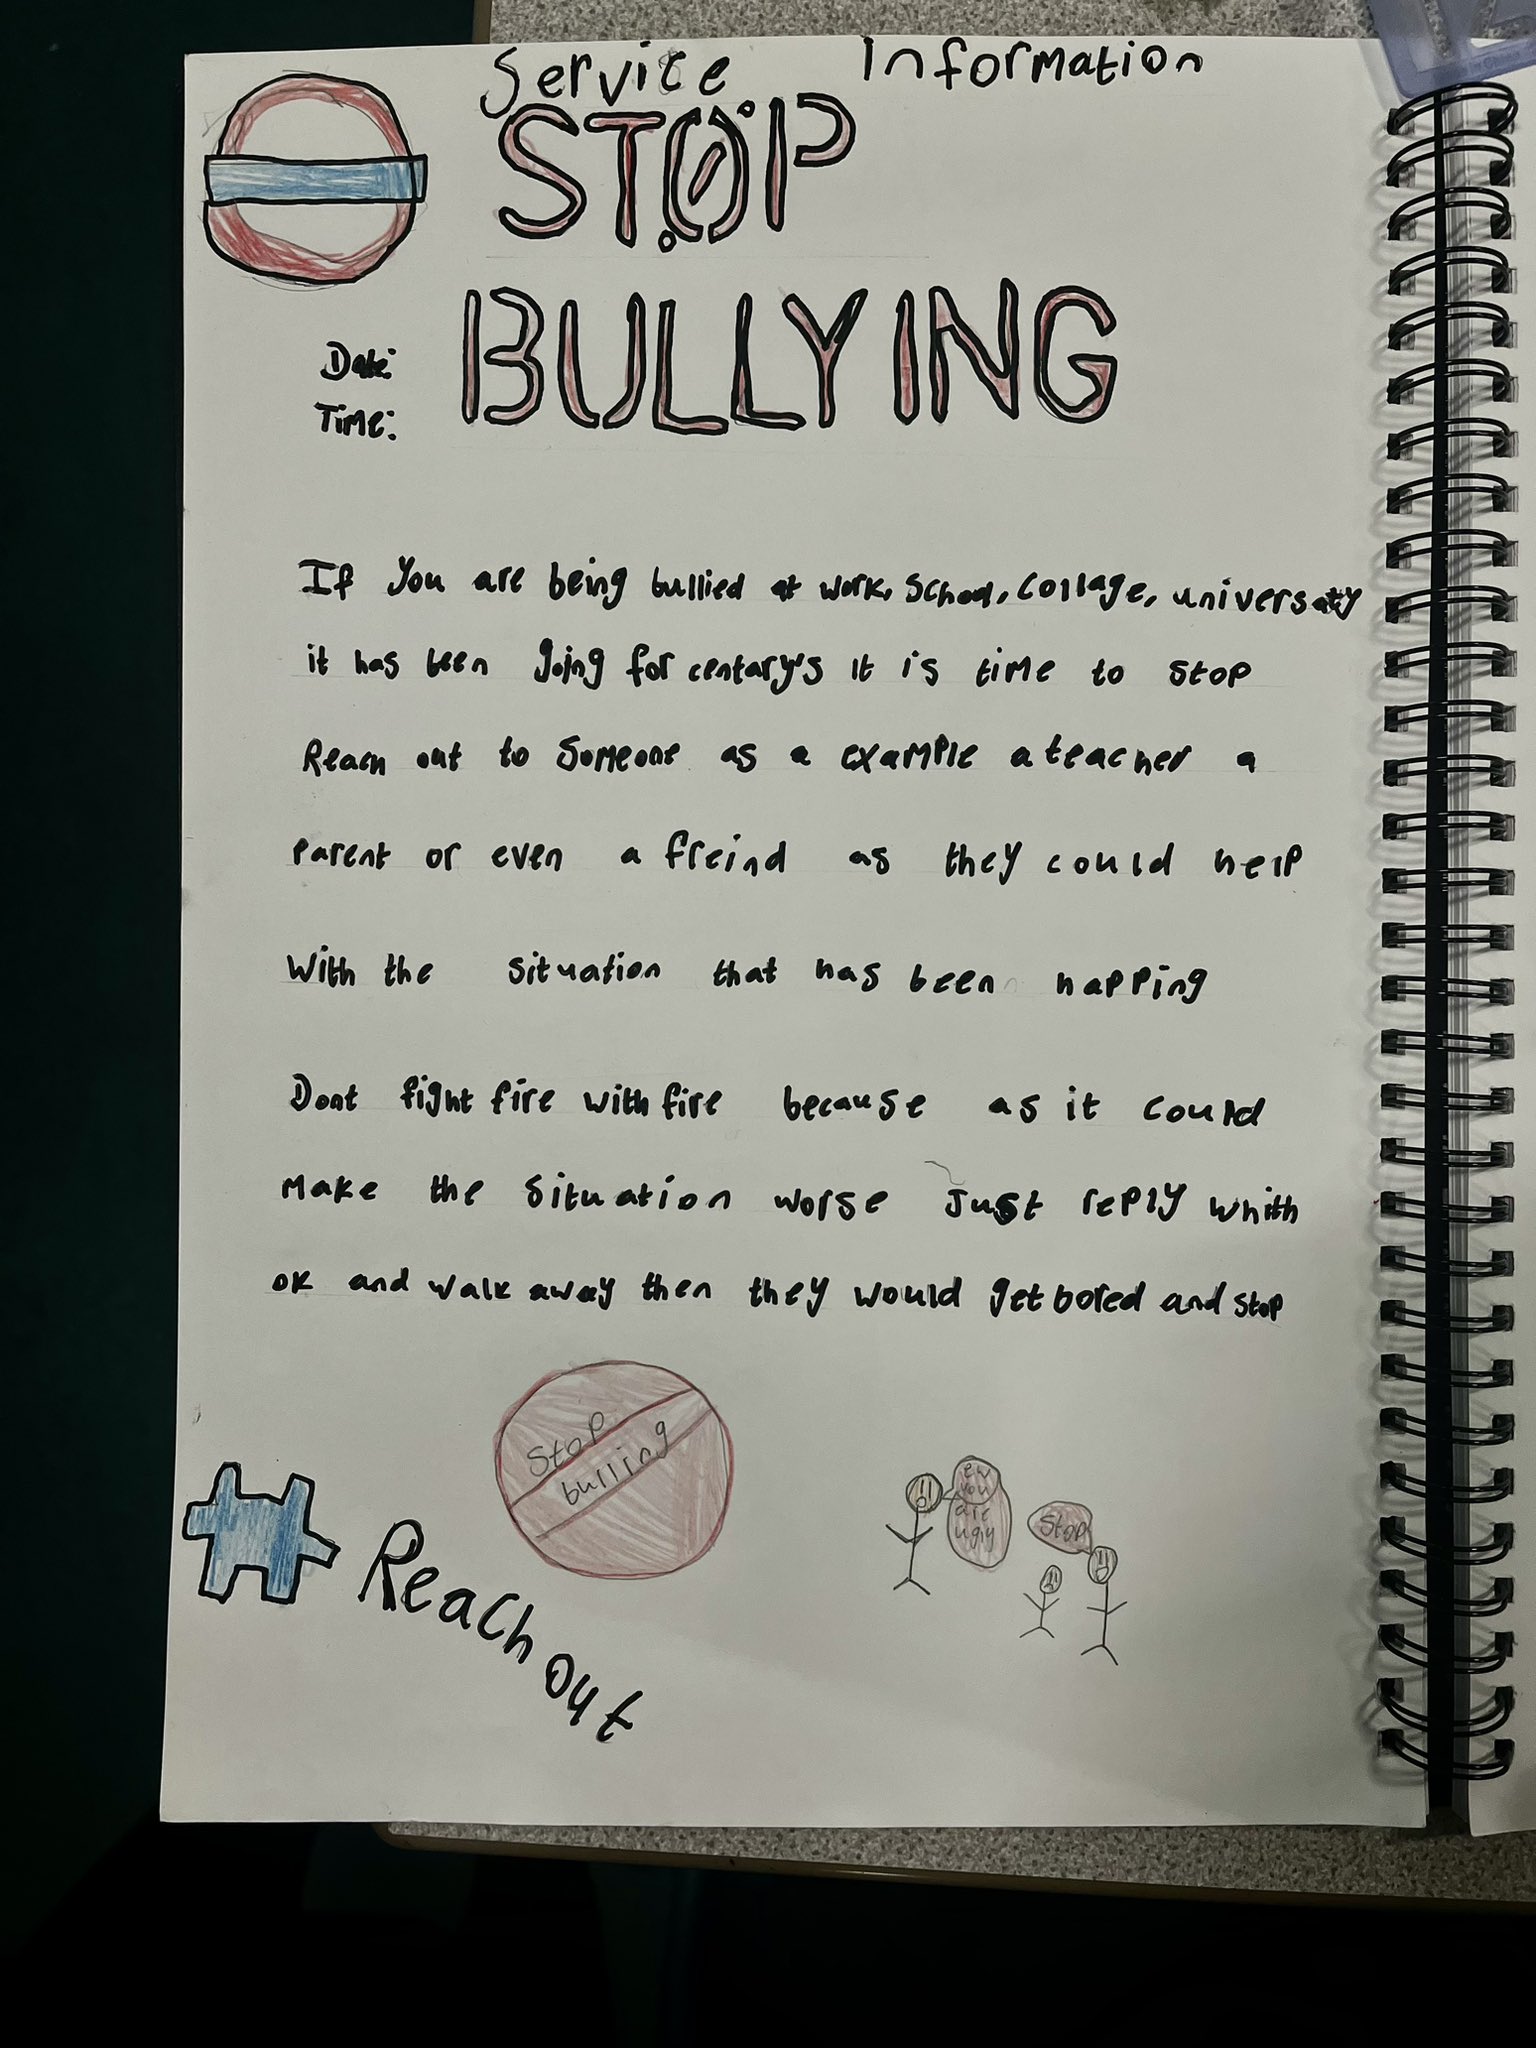 Service Information
STOP
BULLYING
Date:
Time:
If you are being bullied at work, school, collage, universaty
it has been going for centary's it is time to stop
Reach out to someone as a example a teacher a
parent or even a freind as they could help
with the situation that has been happing
Dont fight fire with fire because as it could
make the situation worse Just reply whith
ok and walk away then they would get bored and stop
Stop
bulling
ew
you
are
ugly
Stop
# Reach out